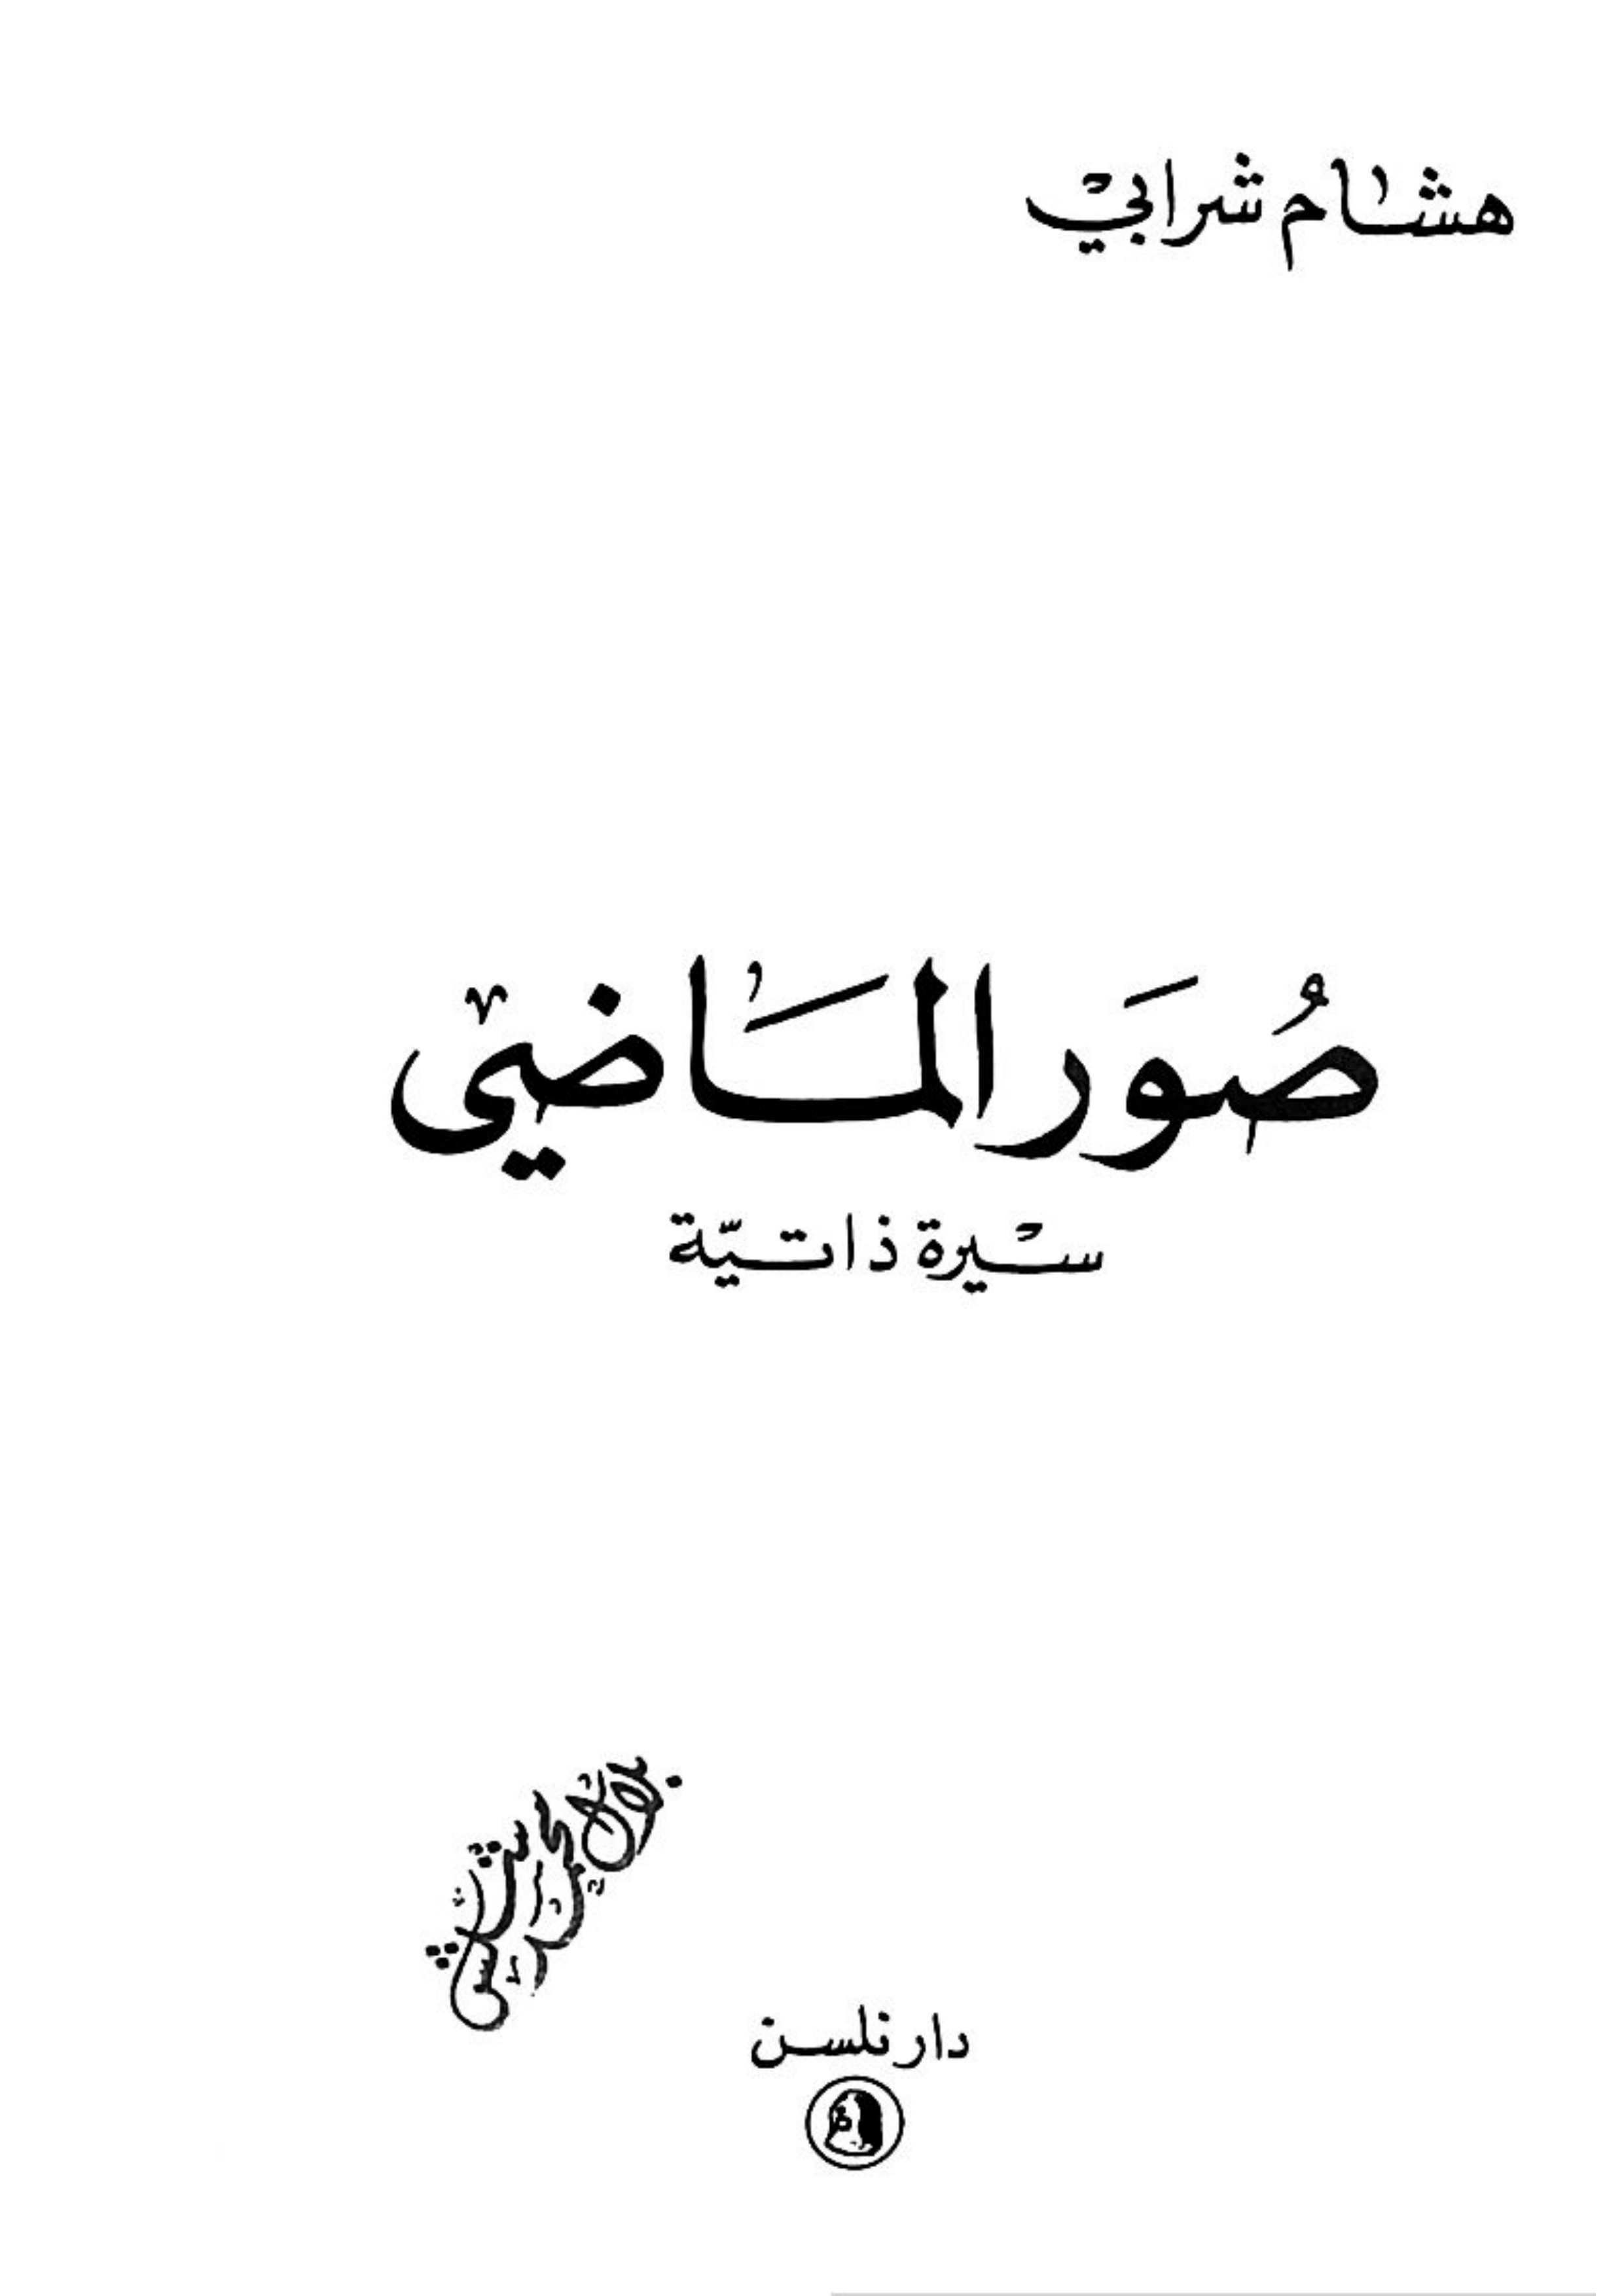 هشام شرابي
صُوَر المَاضي
سيرة ذاتيّة
دار نلسن